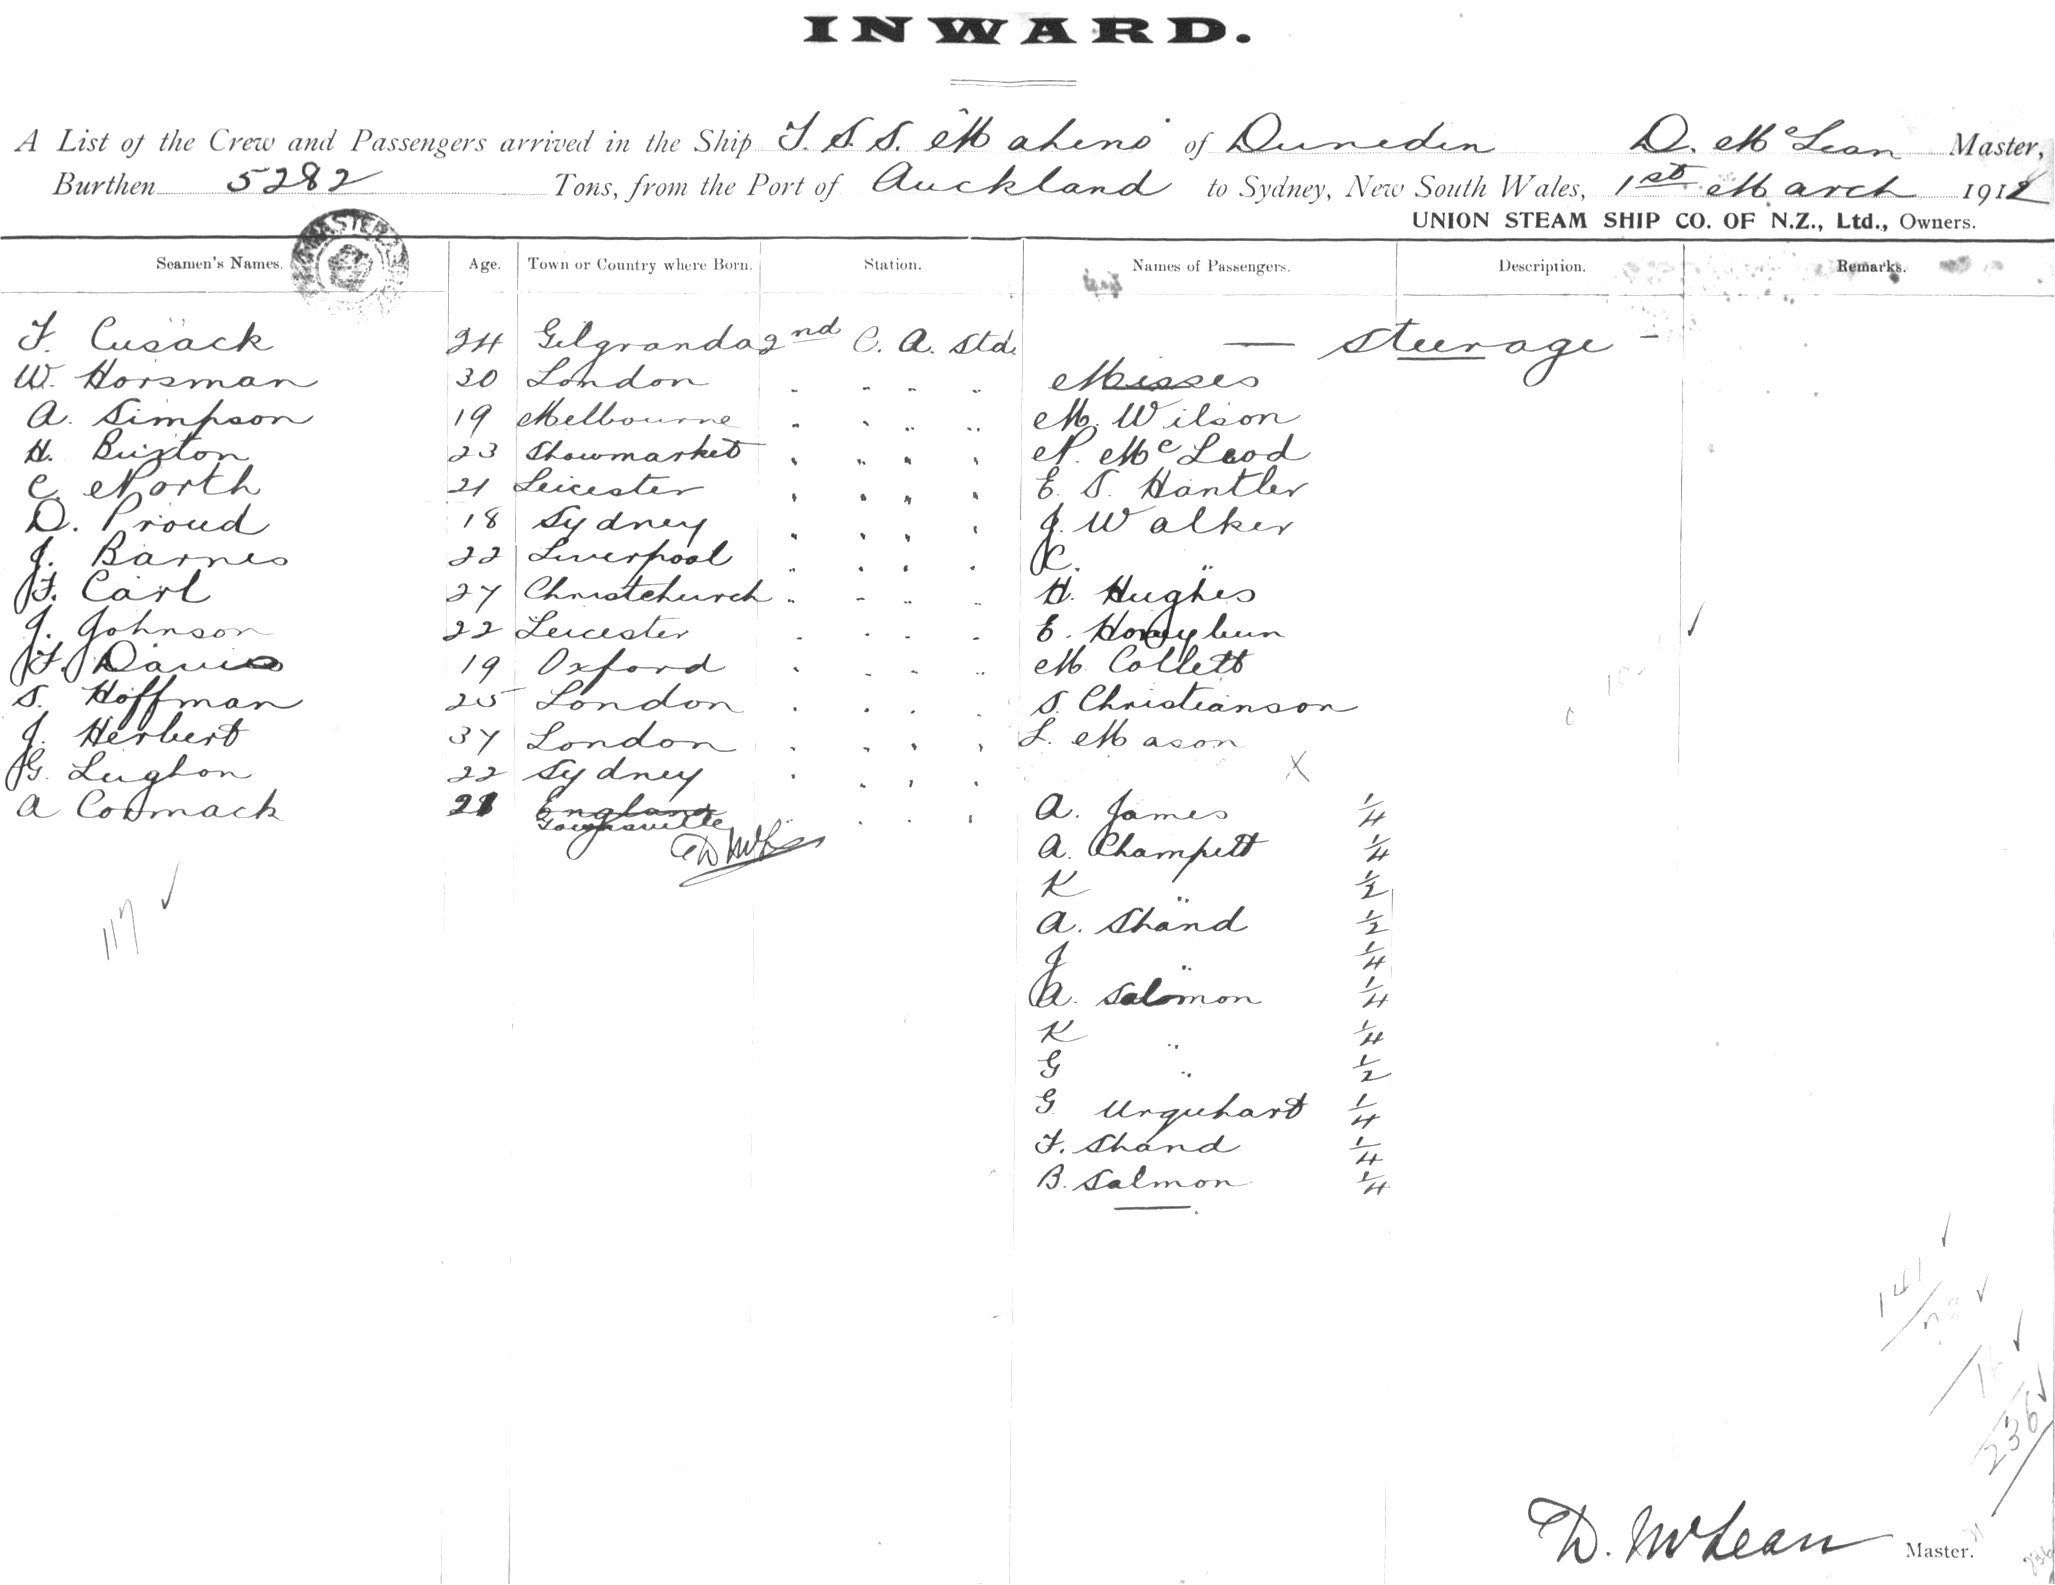 INWARD.
A List of the Crew and Passengers arrived in the Ship T. S. S. "Maheno" of Dunedin D. McLean Master,
Burthen 5282 Tons, from the Port of Auckland to Sydney, New South Wales, 1st March 1912
UNION STEAM SHIP CO. OF N.Z., Ltd., Owners.
Seamen's Names. Age. Town or Country where Born. Station. Names of Passengers. Description. Remarks.
F. Cusack 24 Gilgranda 2nd C. A. Std. — Steerage —
W. Horsman 30 London " " " " Misses
A. Simpson 19 Melbourne " " " " M. Wilson
H. Buxton 23 Showmarket " " " " N. McLeod
C. North 21 Leicester " " " " E. S. Hantler
D. Proud 18 Sydney " " " " J. Walker
J. Barnes 22 Liverpool " " " " C. "
F. Carl 27 Christchurch " " " " H. Hughes
J. Johnson 22 Leicester " " " " E. Honeybun
F. Davis 19 Oxford " " " " M. Collett
S. Hoffman 25 London " " " " S. Christianson
J. Herbert 37 London " " " " L. Mason
G. Lughon 22 Sydney " " " " X
A Cormack 21 England " " " A. James 1/4
Townsville
D McL
A. Champett 1/4
K " 1/2
A. Shand 1/2
117
J " 1/4
A. Salomon 1/4
K " 1/4
G " 1/2
G Urquhart 1/4
F. Shand 1/4
B. Salmon 1/4
141
236
D. McLean Master.
236